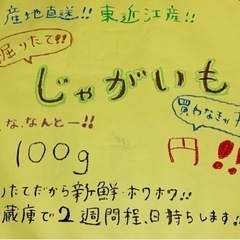 産地直送!! 東近江産!!
掘りたて!!
じゃがいも
な、なんとー!!
買わなきゃ
100g
円!!
りたてだから新鮮・ホワホワ!!
蔵庫で2週間程、日持ちします!!